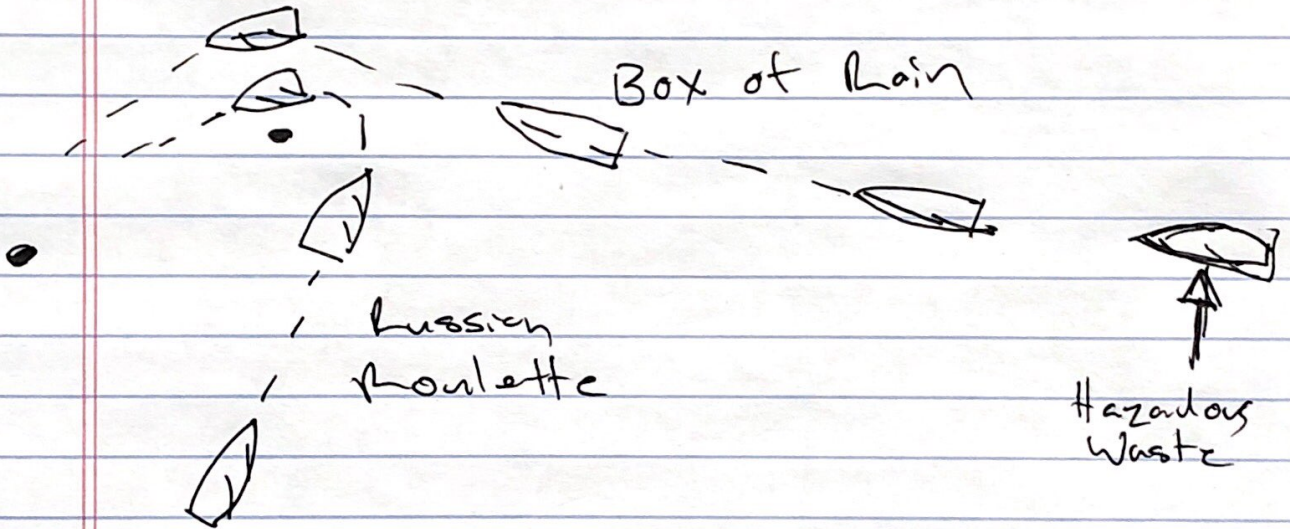 Box of Rain
Russian
Roulette
Hazadous
Waste